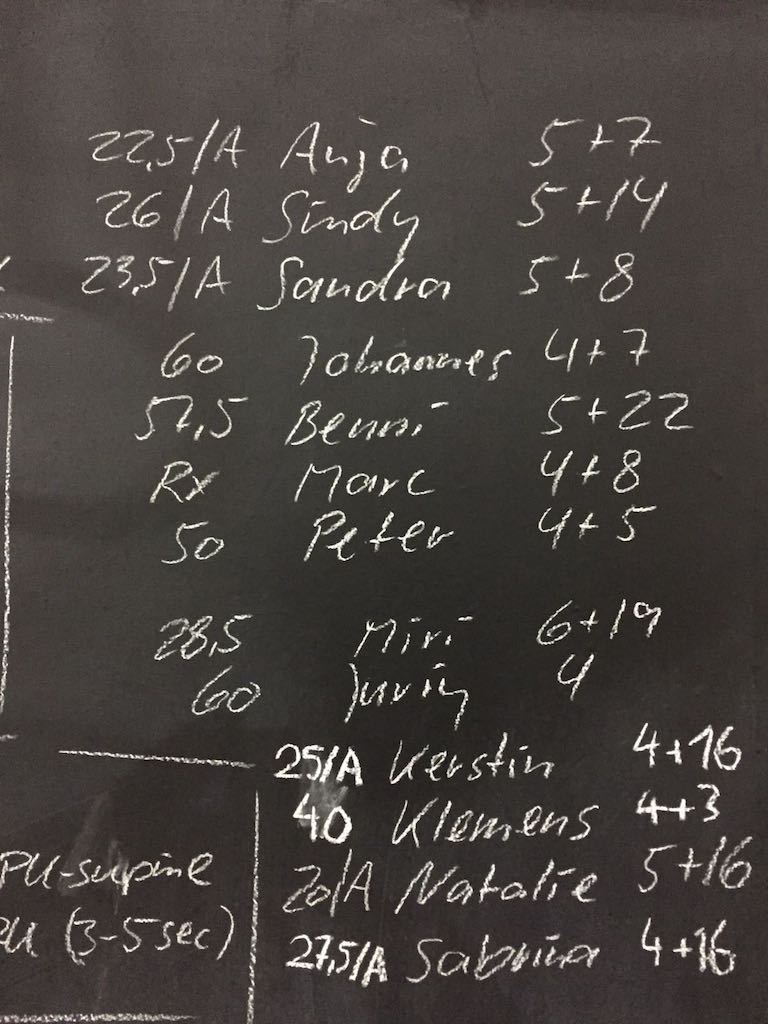 22,5/A Anja 5+7
26/A Sindy 5+14
23,5/A Sandra 5+8
60 Johannes 4+7
57,5 Benni 5+22
Rx Marc 4+8
50 Peter 4+5
28,5 Miri 6+19
60 4
25/A Kerstin 4+16
40 Klemens 4+3
20/A Natalie 5+16
27,5/A Sabrina 4+16
PU-supine
PU (3-5 sec)